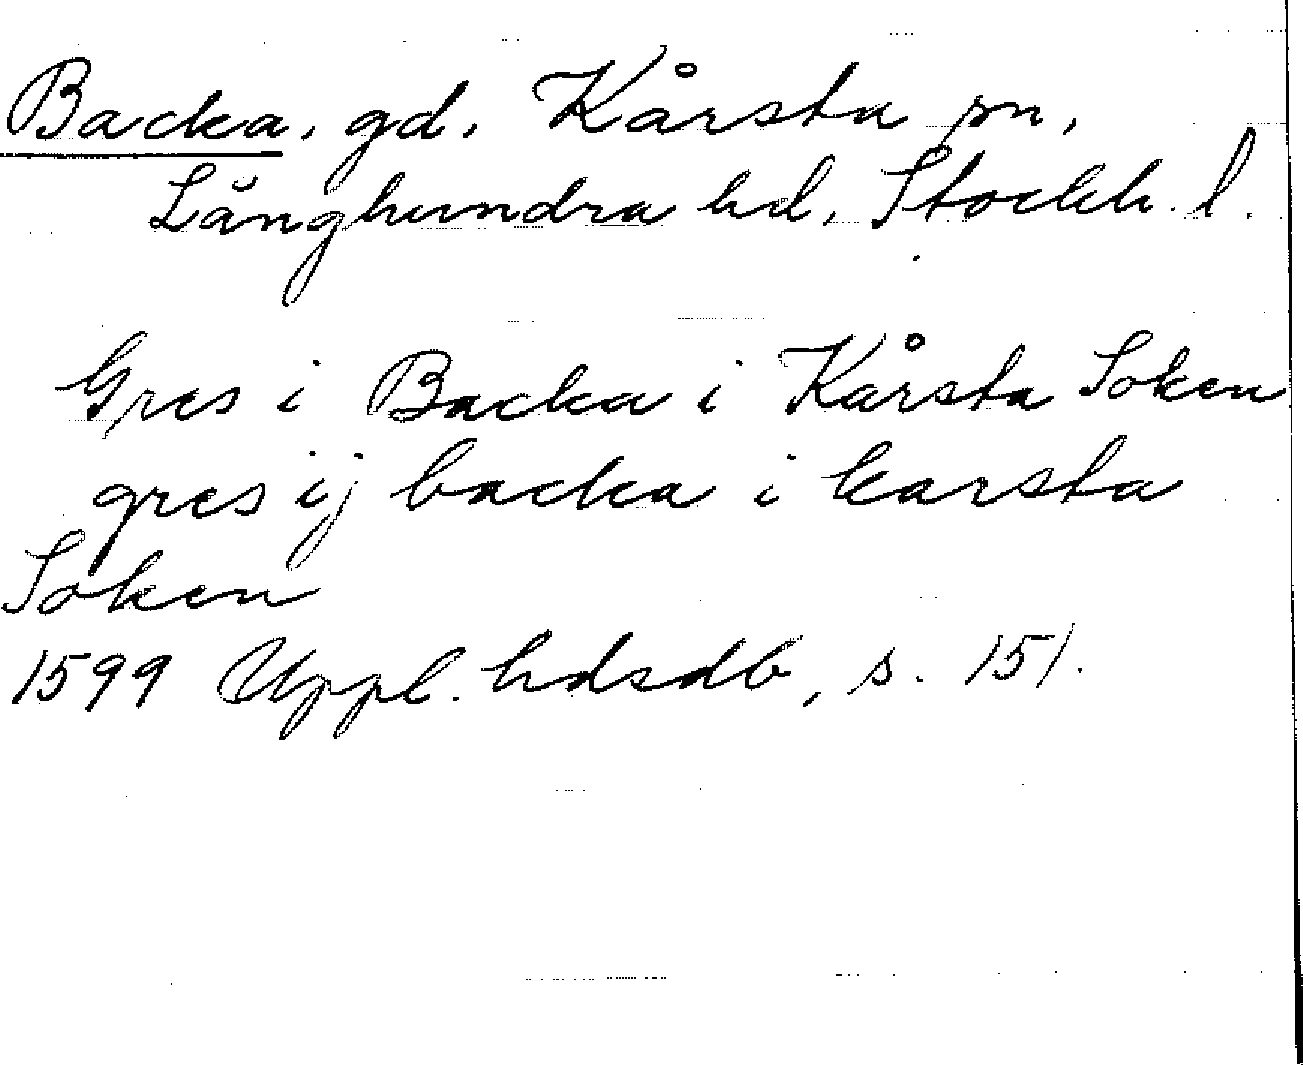 Backa, gd, Kårsta sn,
Långhundra hd, Stockh. l.
Gres i Backa i Kårsta Soken
gres ij backa i karsta
Soken
1599 Uppl. hdsdb, s. 151.